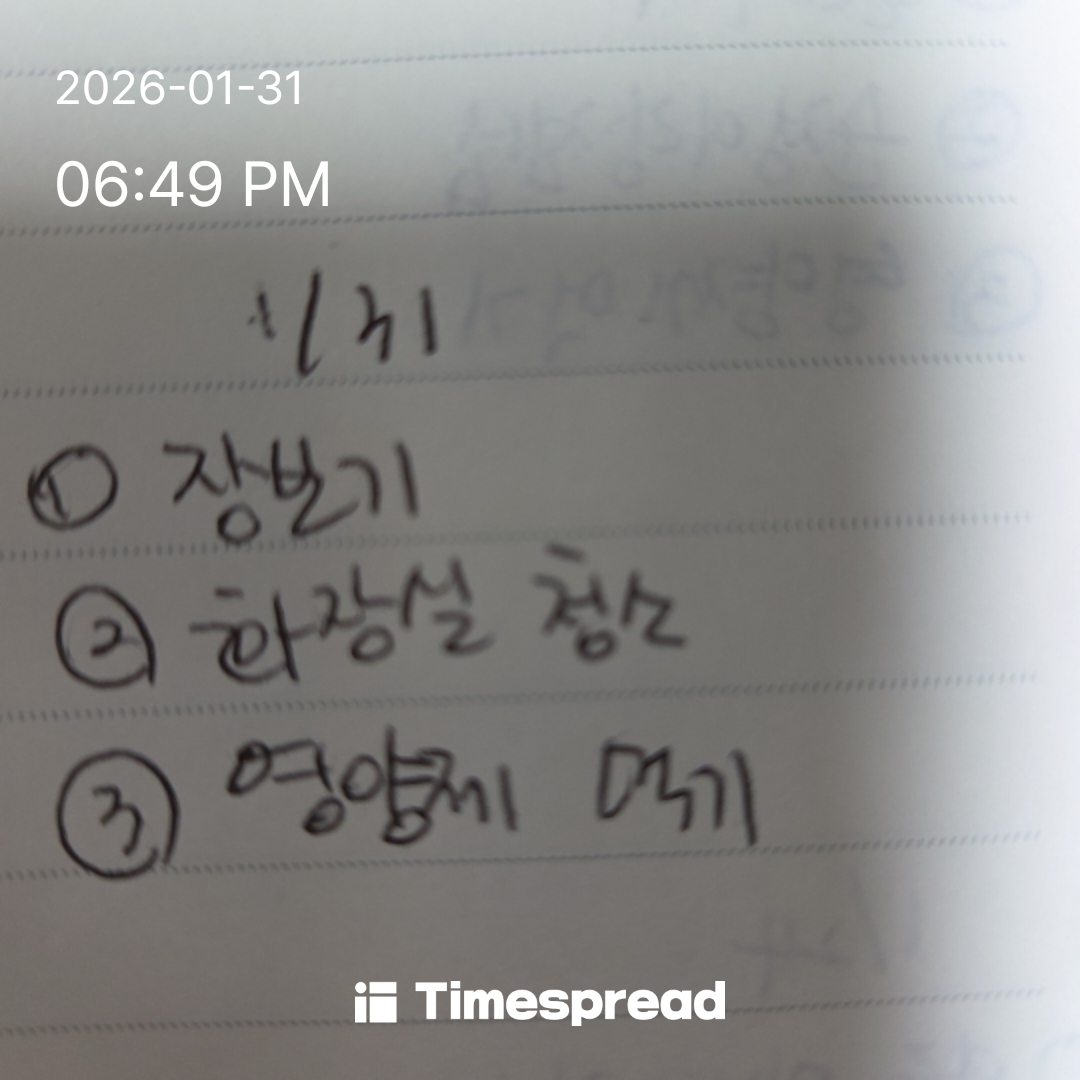 2026-01-31
06:49 PM
1/31
① 장보기
② 화장실 청소
③ 영양제 먹기
Timespread